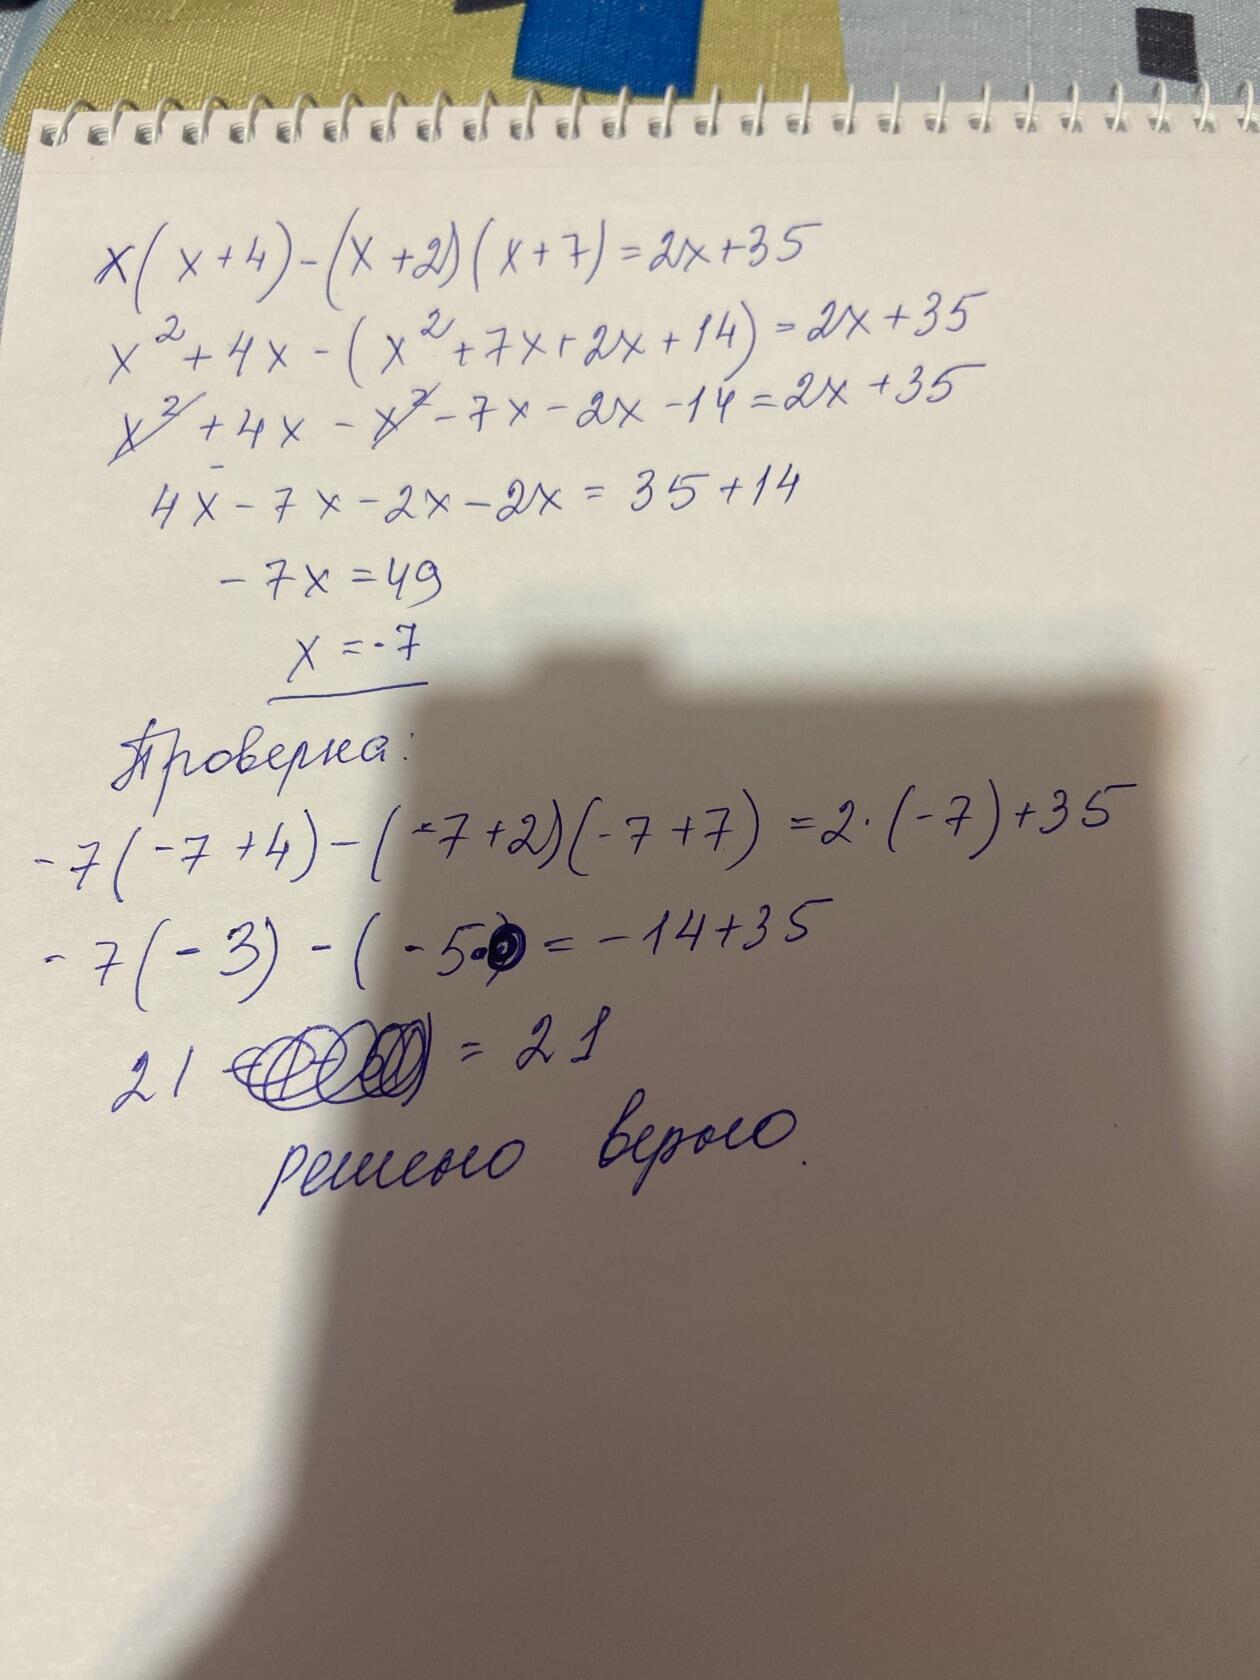 x(x+4)-(x+2)(x+7)=2x+35
x²+4x-(x²+7x+2x+14)=2x+35
x²+4x-x²-7x-2x-14=2x+35
4x-7x-2x-2x=35+14
-7x=49
x=-7
Проверка:
-7(-7+4)-(-7+2)(-7+7)=2·(-7)+35
-7(-3)-(-5·0)=-14+35
21=21
решено верно.